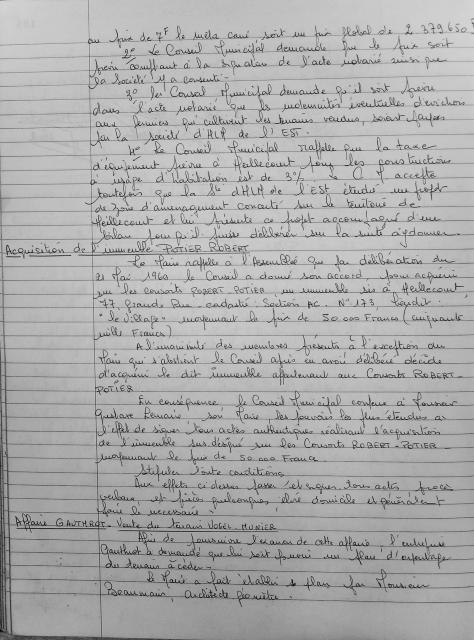 au prix de 7F le mètre carré soit un prix global de 2 379 650 F
2° Le Conseil Municipal demande que le prix soit
payé comptant à la signature de l'acte notarié ainsi que
la Société y a consenti.
3° le Conseil Municipal demande qu'il soit précisé
dans l'acte notarié que les indemnités éventuelles d'éviction
aux fermiers qui cultivent les terrains vendus, soient payées
par la société d'HLM de l'EST.
4° Le Conseil Municipal rappelle que la taxe
d'équipement prévue à Heillecourt pour les constructions
à usage d'habitation est de 3% - Le C M accepte
toutefois que la Sté d'HLM de l'EST étudie un projet
de zone d'aménagement concerté sur le territoire de
Heillecourt et lui présente ce projet accompagné d'un
bilan pour qu'il puisse délibérer sur la suite à donner.
Acquisition de l'immeuble POTIER ROBERT
Le Maire rappelle à l'Assemblée que par délibération du
21 Mai 1969 le Conseil a donné son accord pour acquérir
sur les consorts ROBERT-POTIER, un immeuble sis à Heillecourt
77, Grande Rue - cadastré : Section AC. N° 173, lieudit
"le village" moyennant le prix de 50.000 Francs (cinquante
mille Francs)
A l'unanimité des membres présents à l'exception du
Maire qui s'abstient le Conseil après en avoir délibéré décide
d'acquérir le dit immeuble appartenant aux Consorts ROBERT-
POTIER
En conséquence, le Conseil Municipal confère à Monsieur
Gustave Lemaire, son Maire, les pouvoirs les plus étendus à
l'effet de signer tous actes authentiques réalisant l'acquisition
de l'immeuble sus désigné sur les Consorts ROBERT-POTIER -
moyennant le prix de 50.000 Francs
Stipuler toute conditions
Aux effets ci dessus passer et signer tous actes procès
verbaux et pièces quelconques, élire domicile et généralement
faire le nécessaire.
Affaire GAUTHROT - Vente du terrain VOGEL-MUNIER
Afin de poursuivre l'examen de cette affaire, l'entreprise
Gauthrot a demandé que lui soit fourni un plan d'arpentage
du terrain à céder -
Le Maire a fait établir ce plan par Monsieur
Beaumain, Architecte géomètre.